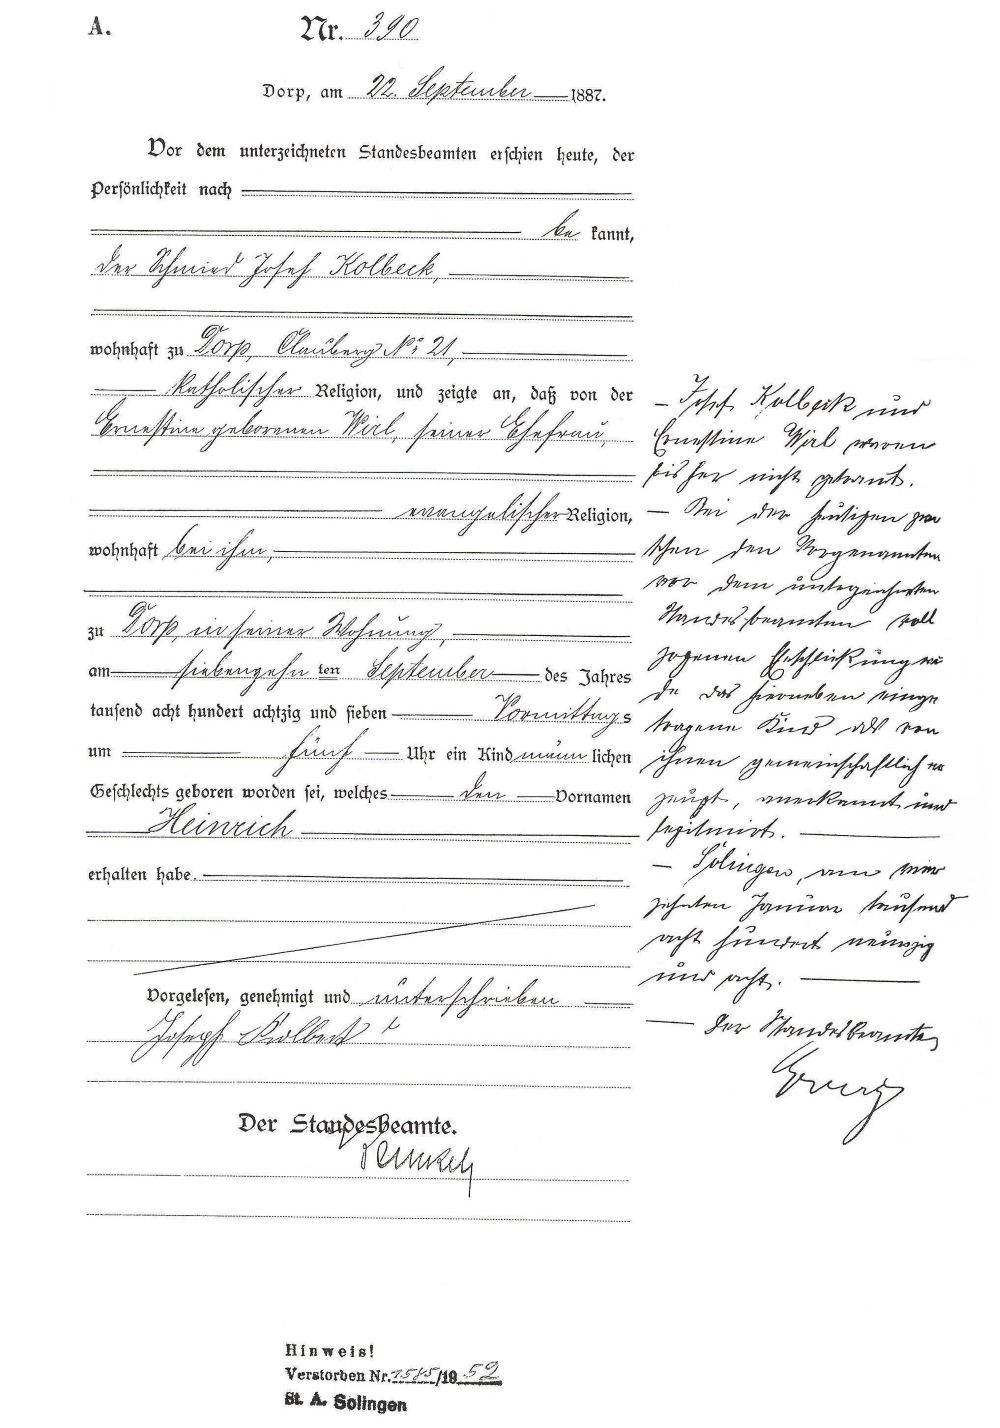 A.
Nr. 390
Dorp, am 22. September 1887.
Vor dem unterzeichneten Standesbeamten erschien heute, der
Persönlichkeit nach
be kannt,
der Schmied Josef Kolbeck,
wohnhaft zu Dorp, Clauberg No 21,
katholischer Religion, und zeigte an, daß von der
Ernestine geborenen Wirl, seiner Ehefrau,
evangelischer Religion,
wohnhaft bei ihm,
zu Dorp, in seiner Wohnung,
am siebenzehn ten September des Jahres
tausend acht hundert achtzig und sieben Vormittags
um fünf Uhr ein Kind männ lichen
Geschlechts geboren worden sei, welches den Vornamen
Heinrich
erhalten habe.
Vorgelesen, genehmigt und unterschrieben
Joseph Kolbeck
Der Standesbeamte.
– Josef Kolbeck und
Ernestine Wirl waren
bisher nicht getraut.
– Bei der heutigen zwi
schen den Vorgenannten
vor dem unterzeichneten
Standesbeamten voll
zogenen Eheschließung wur
de das hierneben einge
tragene Kind als von
ihnen gemeinschaftlich er
zeugt, anerkannt und
legitimirt.
– Solingen, am vier
zehnten Januar tausend
acht hundert neunzig
und acht.
Der Standesbeamte
Hinweis!
Verstorben Nr. 1585/19 52
St. A. Solingen